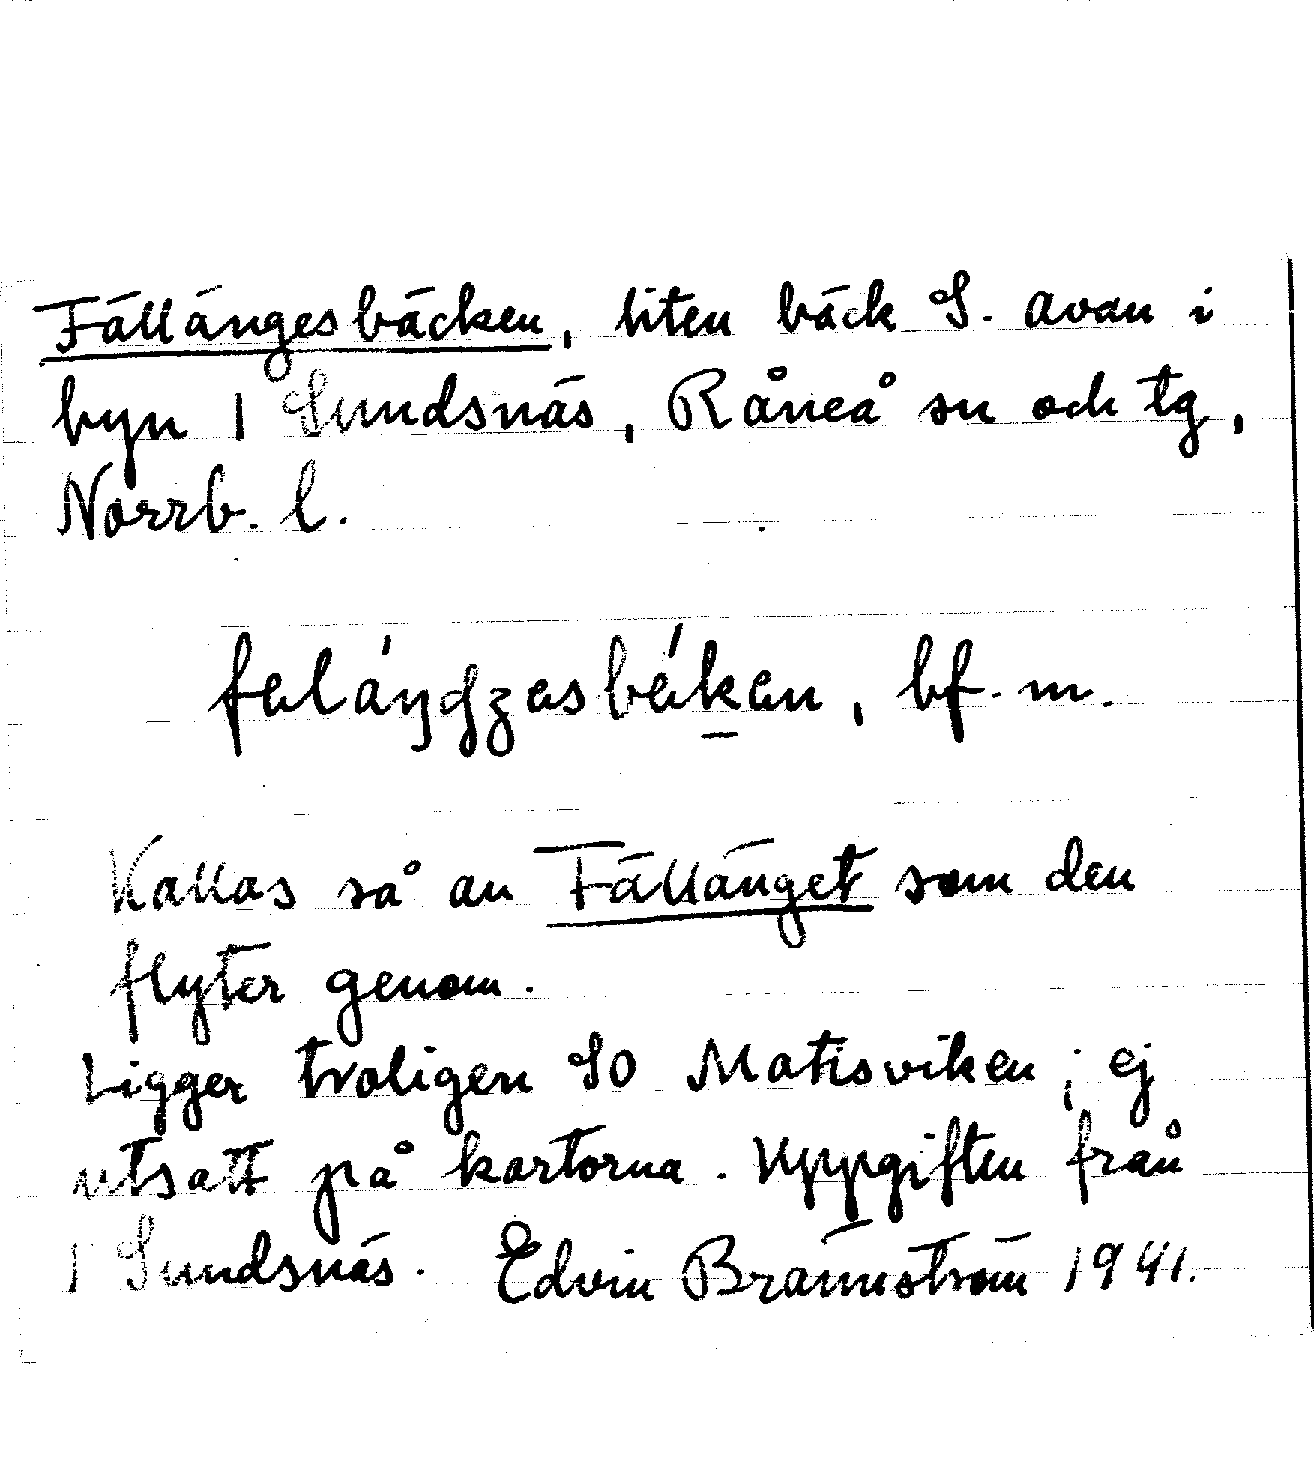 Fällängesbäcken, liten bäck S. avan i
byn 1 Sundsnäs, Råneå sn och tg,
Norrb. l.
bf. m.
Kallas så av Fällänget som den
flyter genom.
Ligger troligen SO Matisviken; ej
utsatt på kartorna. Uppgiften från
1 Sundsnäs. Edvin Brännström 1941.